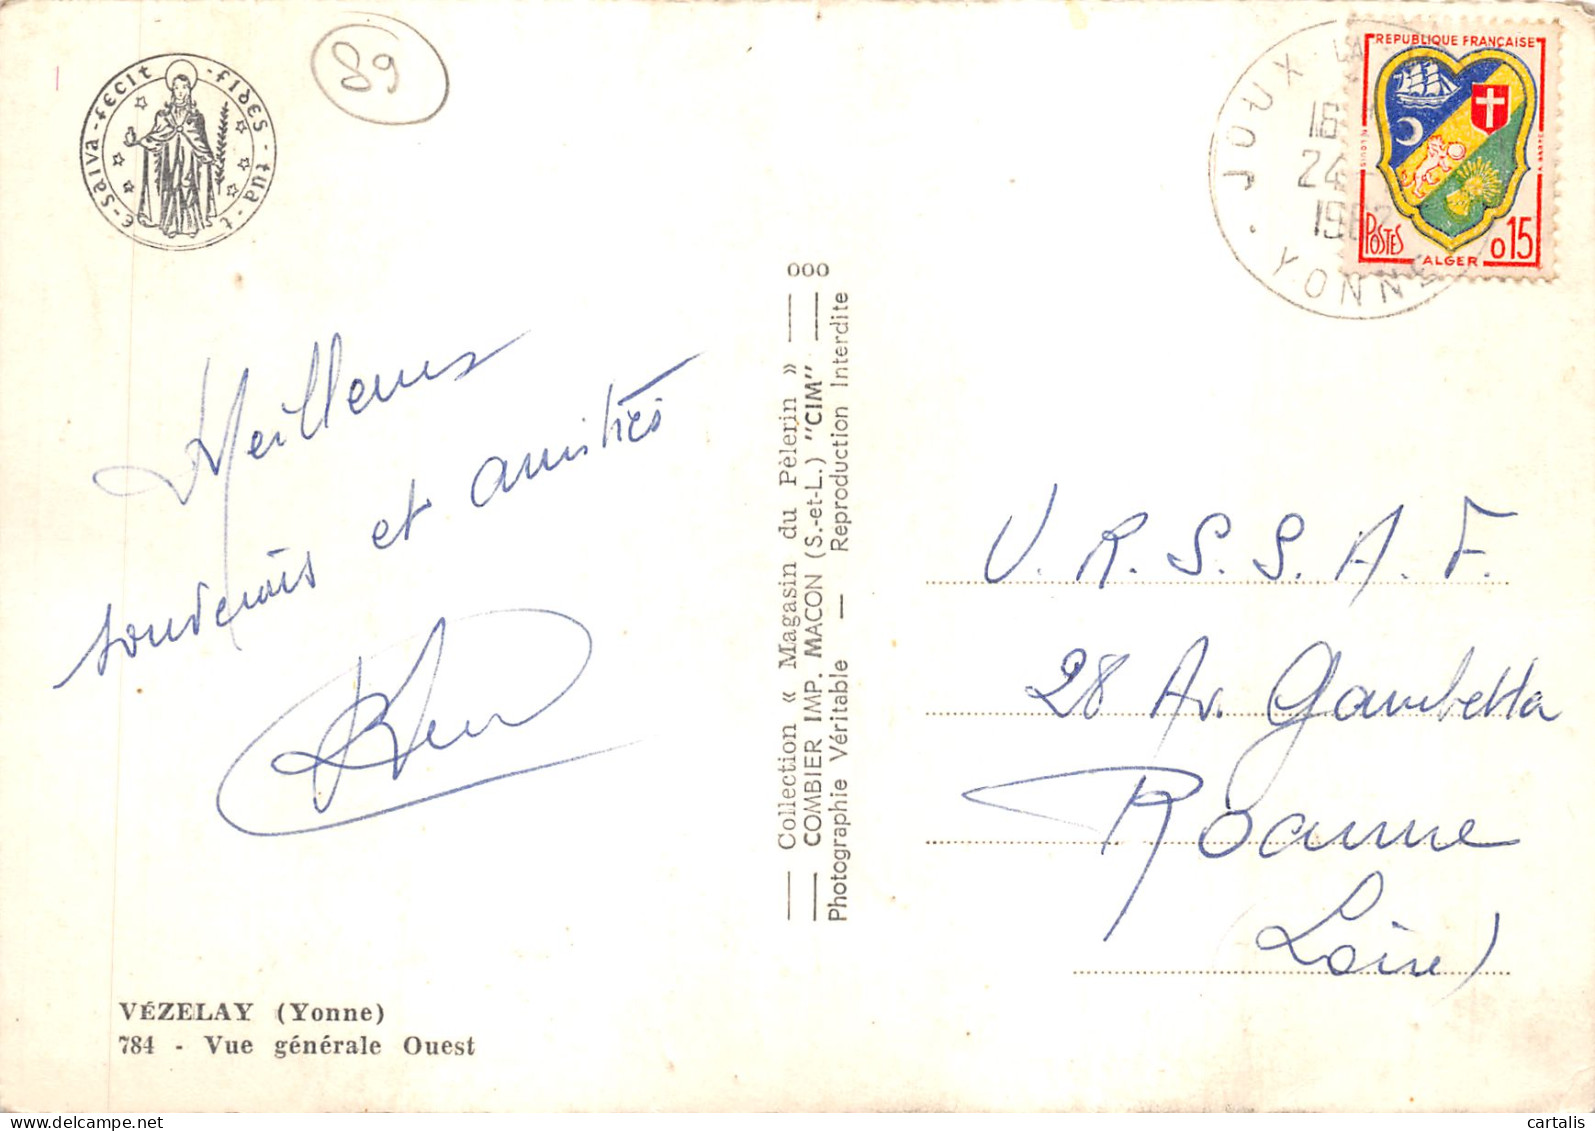 fides - tua - te - salva - fecit
89
JOUX LA
YONNE
16
24
1962
REPUBLIQUE FRANÇAISE
POSTES
0,15
ALGER
Meilleurs
souvenirs et amitiés
000
Collection « Magasin du Pèlerin »
COMBIER IMP. MACON (S.-et-L.) "CIM"
Photographie Véritable — Reproduction Interdite
U.R.S.S.A.F.
28 Av. Gambetta
Roanne
(Loire)
VÉZELAY (Yonne)
784 - Vue générale Ouest
cartalis
www.delcampe.net